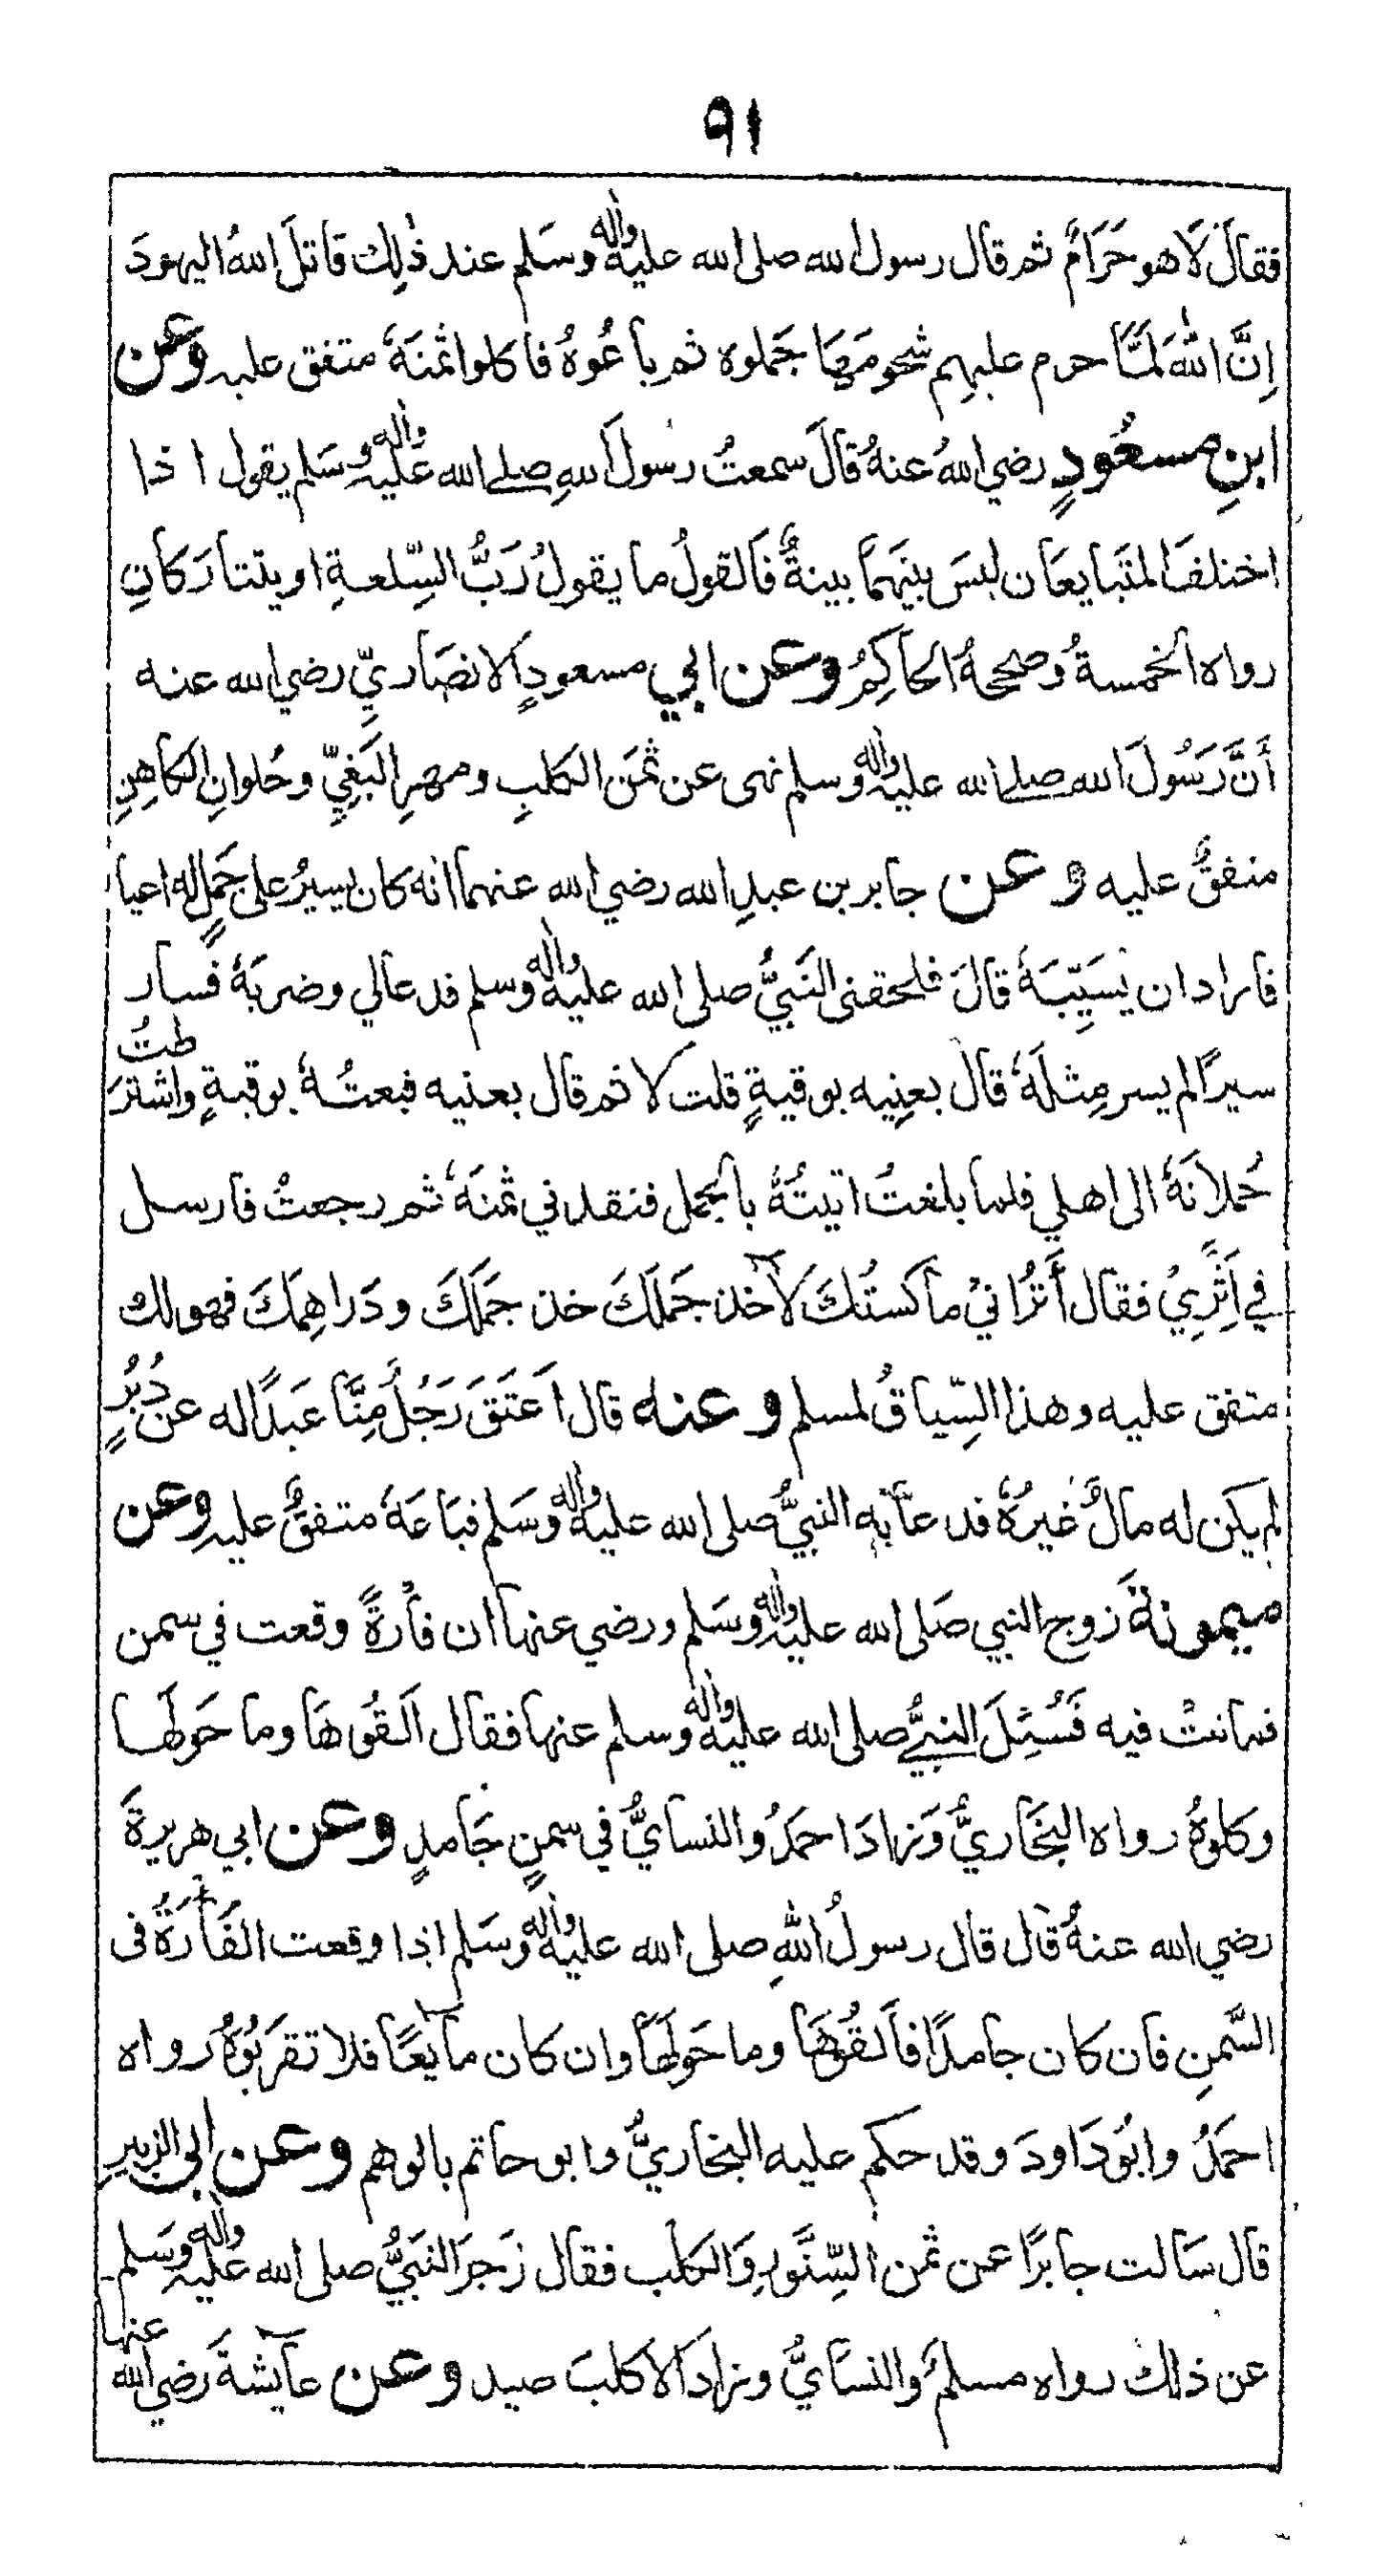 ٩١
فقالَ لَا هو حَرَامٌ ثم قال رسول الله صلى الله عليه واٰله وسَلم عند ذٰلِك قاتلَ اللهُ اليهودَ
اِنَّ اللهَ لَمَّا حرم عليهم شحومَهَا جَملوه ثم باعُوهُ فاكلوا ثمنَهٗ متفق عليه وعن
ابنِ مسعُودٍ رضي اللهُ عنهُ قالَ سمعتُ رسولَ اللهِ صلے الله عليه واٰله وسَلم يقول اذا
اختلفَ المتَبايعَان ليسَ بينَهمَا بينةٌ فَالقولُ ما يقولُ رَبُّ السِّلعةِ او يتتارَكَانِ
رواه الخمسةُ وصححهُ الحاكِمُ وعن ابي مسعودٍ الانصَاريِّ رضي الله عنه
أَنَّ رَسُولَ الله صلے الله عليه واٰله وسلم نهى عن ثمَن الكلبِ ومهرِ البَغِيِّ وحُلوانِ الكاهِنِ
متفقٌ عليه وعن جابر بن عبدِ الله رضي الله عنهما انه كان يسيرُ على جَملٍ له اعيا
فاراد ان يُسَيِّبَهٗ قالَ فلحقنى النَبيُّ صلى الله عليه واٰله وسلم فدعا لي وضربَهٗ فسار
سيرًا لم يسر مِثلَهٗ قال بعنِيه بوقيةٍ قلت لا ثم قال بعنيه فبعتُهٗ بوقيةٍ واشترَطتُ
حُملانَهٗ الى اهلي فلما بلغتُ اتيتُهٗ بالجمل فنقدني ثمنَهٗ ثم رجعتُ فارسل
في اَثَرِيْ فقال أَتُرَانيْ ماكستُكَ لآخذ جَملَكَ خذ جَملَكَ ودَراهِمَكَ فهو لك
متفق عليه وهذا السِّياقُ لمسلم وعنه قال اَعتَقَ رَجُلٌ مِنَّا عَبدًا له عن دُبُرٍ
لم يكن له مالٌ غيرُهٗ فدعا به النبيُّ صلى الله عليه واٰله وسَلم فبَاعَهٗ متفقٌ عليه وعن
ميمونةَ زوج النبي صَلى الله عليه واٰله وسَلم ورضي عنها ان فأرةً وقعت في سمن
فماتتْ فيه فَسُئِلَ النبيُّ صلى الله عليه واٰله وسلم عنها فقال اَلقُوهَا وما حَولَهَا
وكلوهُ رواه البخَاريُّ وَزادَ احمَدُ والنسايُّ في سمنٍ جَامدٍ وعن ابي هريرةَ
رضي الله عنهُ قال قال رسولُ اللهِ صلى الله عليه واٰله وسَلم اذا وقعت الفَأرَةُ فى
السَّمنِ فان كان جامدًا فاَلقُوهَا وما حَولَهَا وان كان مايِعًا فلا تقرَبُوهُ رواه
احمَدُ وابُو دَاودَ وقد حكم عليه البخاريُّ وابو حاتم بالوهم وعن ابى الزبيرِ
قال سَالت جابرًا عن ثمن السِّنَّورِ وَالكلب فقال زَجرَ النبَيُّ صلى الله عليه واٰله وسَلم
عن ذلك رواه مسلمٌ والنسَايُّ وزاد الا كلبَ صيد وعن عآيشةَ رضي الله عنها